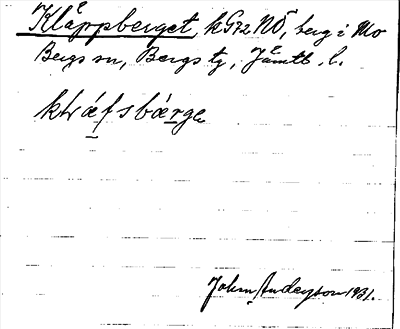 Kläppberget, kG72NÖ, berg i Mo
Bergs sn, Bergs tg, Jämtl. l.
klræfsbærge
John Anderson 1931.